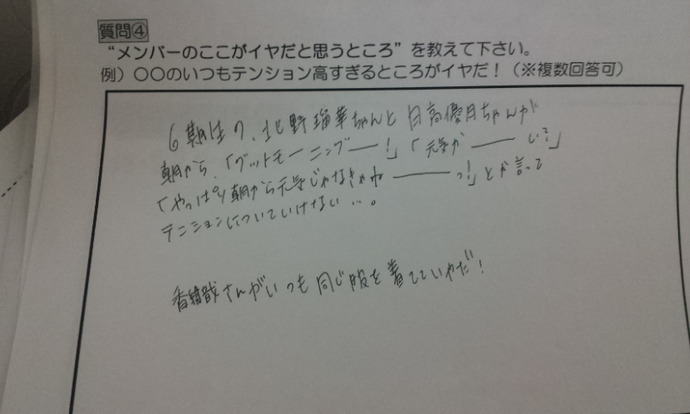 質問④
“メンバーのここがイヤだと思うところ”を教えて下さい。
例）〇〇のいつもテンション高すぎるところがイヤだ！（※複数回答可）
6期生の、北野瑠華ちゃんと日高優月ちゃんが
朝から、「グットモーニングー！」「元気か――い？」
「やっぱり朝から元気じゃなきゃね――っ！」とか言って
テンションについていけない…。
香織さんがいつも同じ服を着てていやだ！